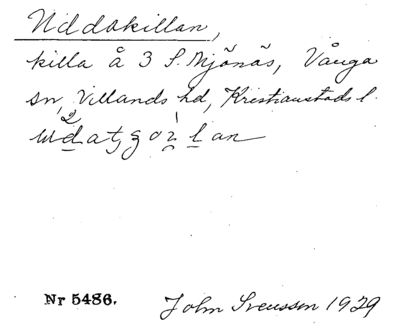 Uddakillan,
killa å 3 S. Mjönäs, Vånga
sn, Villands hd, Kristianstads l.
Nr 5486.
John Svensson 1929